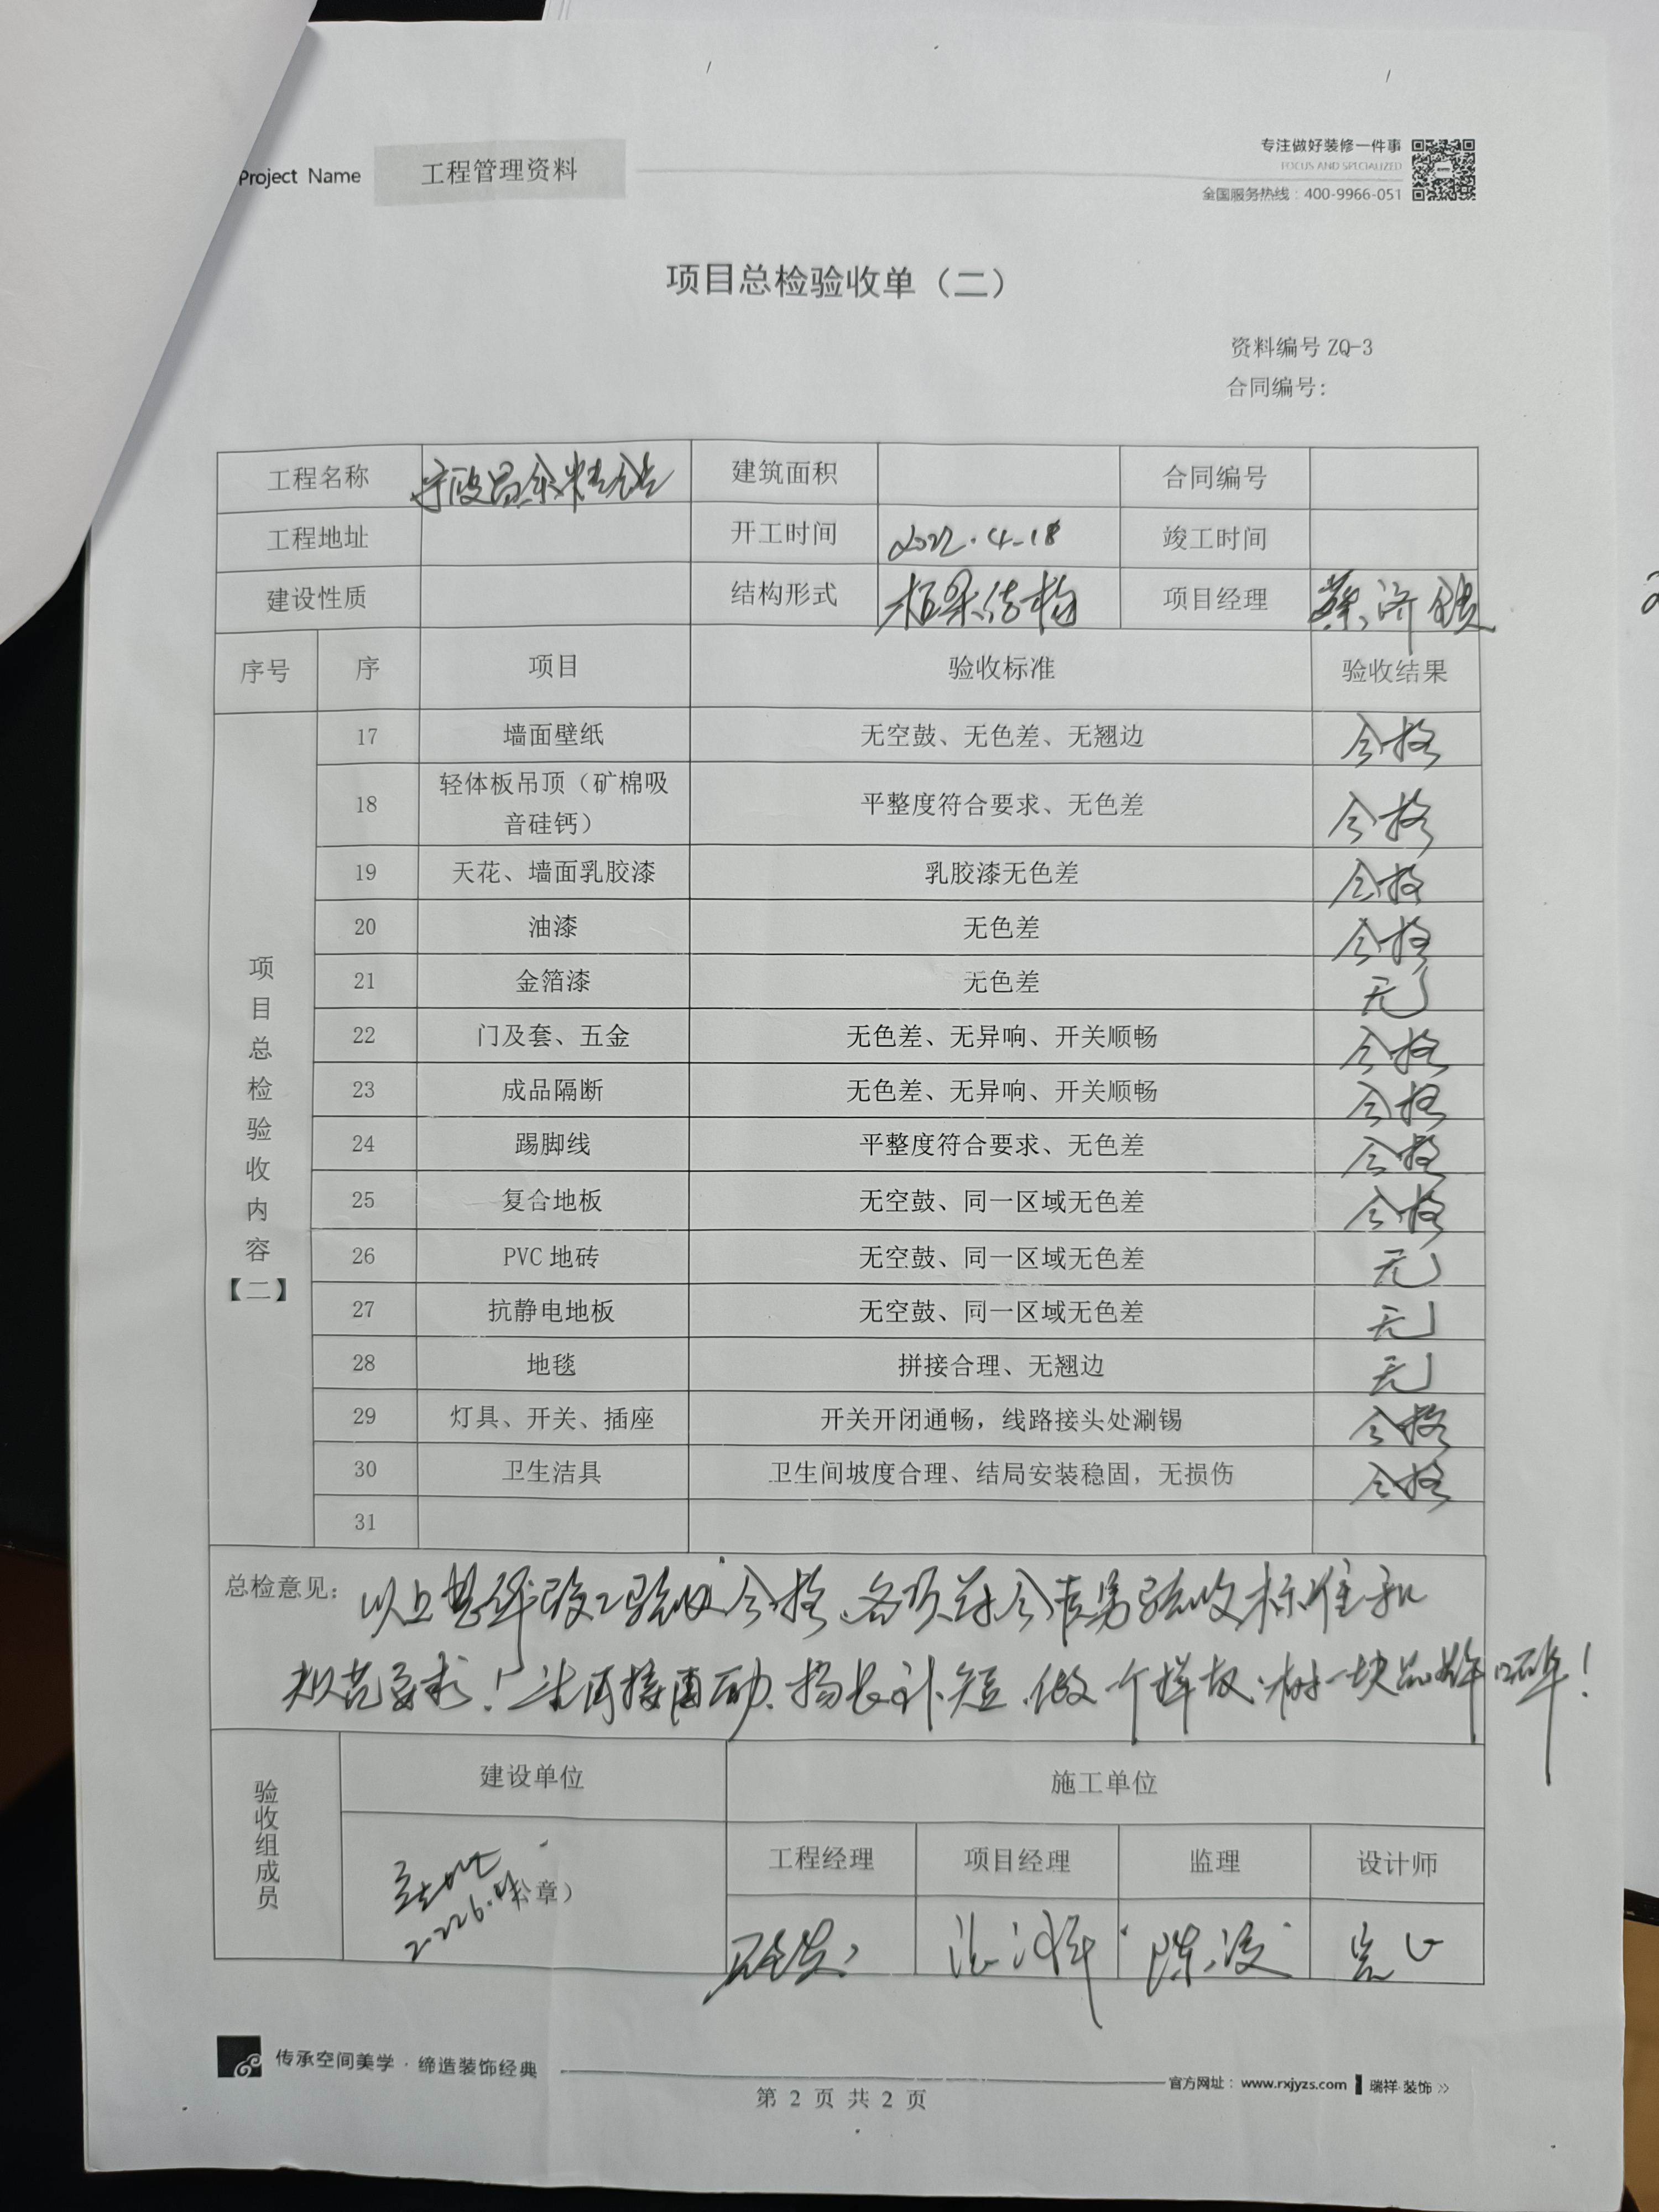 Project Name 工程管理资料
专注做好装修一件事
FOCUS AND SPECIALIZED
全国服务热线：400-9966-051
项目总检验收单（二）
资料编号 ZQ-3
合同编号：
工程名称 建筑面积 合同编号
工程地址 开工时间 2022.4-18 竣工时间
建设性质 结构形式 框架结构 项目经理
序号 序 项目 验收标准 验收结果
项目总检验收内容【二】
17 墙面壁纸 无空鼓、无色差、无翘边 合格
18 轻体板吊顶（矿棉吸 平整度符合要求、无色差 合格
音硅钙）
19 天花、墙面乳胶漆 乳胶漆无色差 合格
20 油漆 无色差 合格
21 金箔漆 无色差 无
22 门及套、五金 无色差、无异响、开关顺畅 合格
23 成品隔断 无色差、无异响、开关顺畅 合格
24 踢脚线 平整度符合要求、无色差 合格
25 复合地板 无空鼓、同一区域无色差 合格
26 PVC 地砖 无空鼓、同一区域无色差 无
27 抗静电地板 无空鼓、同一区域无色差 无
28 地毯 拼接合理、无翘边 无
29 灯具、开关、插座 开关开闭通畅，线路接头处涮锡 合格
30 卫生洁具 卫生间坡度合理、结局安装稳固，无损伤 合格
31
总检意见：以上 验收合格、各项 合 验收标准和
规范要求！ 再接再励、扬长补短、做一个样板、树一块品牌口碑！
验收组成员 建设单位 施工单位
工程经理 项目经理 监理 设计师
公章）
陈凌
传承空间美学·缔造装饰经典
官方网址：www.rxjyzs.com 瑞祥·装饰 >>
第 2 页 共 2 页